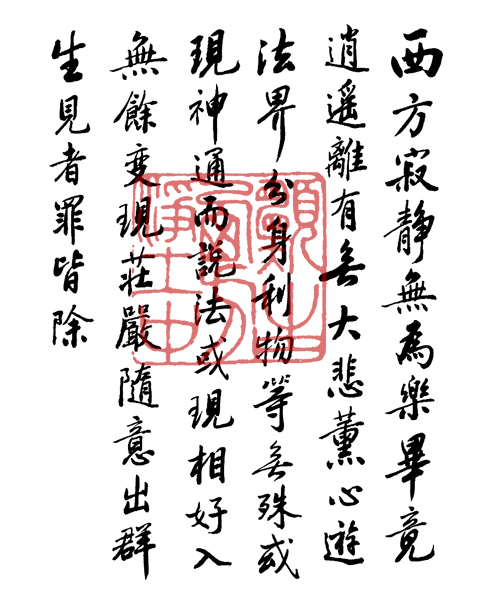 西方寂靜無為樂畢竟
逍遙離有无大悲薰心遊
法界分身利物等无殊或
現神通而說法或現相好入
無餘變現莊嚴隨意出群
生見者罪皆除
願生
西方
淨土中